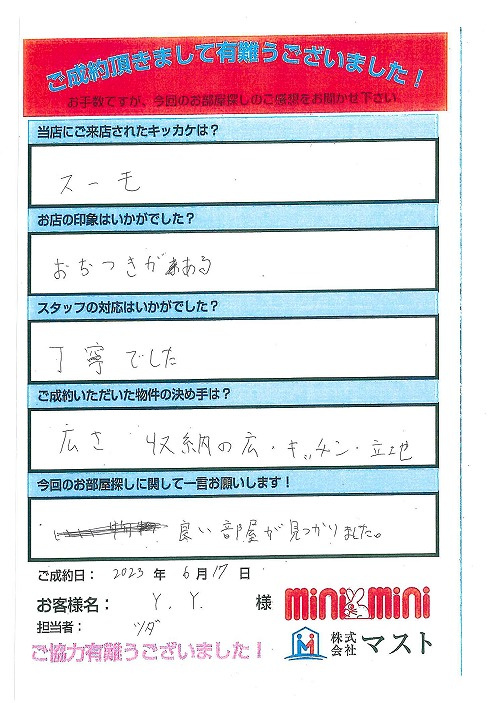 ご成約頂きまして有難うございました！
お手数ですが、今回のお部屋探しのご感想をお聞かせ下さい。
当店にご来店されたキッカケは？
スーモ
お店の印象はいかがでした？
おちつきがある
スタッフの対応はいかがでした？
丁寧でした
ご成約いただいた物件の決め手は？
広さ 収納の広・キッチン・立地
今回のお部屋探しに関して一言お願いします！
良い部屋が見つかりました。
ご成約日： 2023 年 6月17日
お客様名： Y. Y. 様 mini mini
担当者： ツダ
株式会社 マスト
ご協力有難うございました！